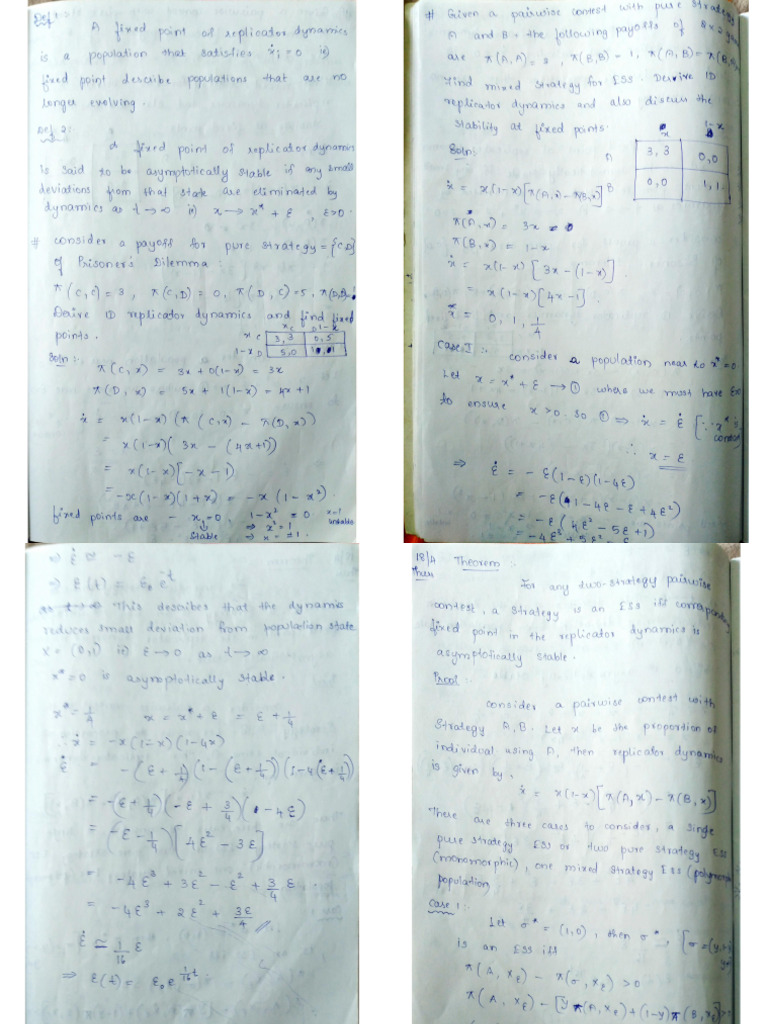 Def 1:
A fixed point of replicator dynamics
is a population that satisfies ẋi = 0 ie)
fixed point describe populations that are no
longer evolving.
Def 2:
A fixed point of replicator dynamics
is said to be asymptotically stable if any small
deviations from that state are eliminated by
dynamics as t → ∞ ie) x → x* + ε , ε>0.
# consider a payoff for pure strategy = {C,D}
of Prisoner's Dilemma:
π(C,C)=3, π(C,D)=0, π(D,C)=5,
Derive ID replicator dynamics and find fixed
points.
x_C D 1-x
x C 3,3 0,5
1-x D 5,0
Soln:
π(C,x) = 3x + 0(1-x) = 3x
π(D,x) = 5x + 1(1-x) = 4x+1
ẋ = x(1-x)(π(C,x) - π(D,x))
= x(1-x)(3x - (4x+1))
= x(1-x)[-x-1]
= -x(1-x)(1+x) = -x(1-x²)
fixed points are - x=0, 1-x² = 0 x=1
↓ ⇒ x²=1 unstable
Stable ⇒ x = ±1
# Given a pairwise contest with pure strategy
A and B. the following payoffs of 2x2
are π(A,A)=3, π(B,B)=1, π(A,B)=π(B,
Find mixed strategy for ESS. Derive ID
replicator dynamics and also discuss the
stability at fixed points.
Soln:
x 1-x
A 3,3 0,0
B 0,0 1,1
ẋ = x(1-x)[π(A,x) - π(B,x)]
π(A,x) = 3x
π(B,x) = 1-x
ẋ = x(1-x)[3x-(1-x)]
= x(1-x)[4x-1]
x* = 0, 1, 1/4
Case I: consider a population near to x*=0
Let x = x* + ε → ① where we must have ε>0
to ensure x>0. so ① ⇒ ẋ = ε̇ [∵ x* is
const
∴ x = ε
⇒ ε̇ = -ε(1-ε)(1-4ε)
= -ε(1-4ε-ε+4ε²)
= -ε(4ε²-5ε+1)
= -4ε³+5ε²-ε
⇒ ε̇ ≅ -ε
⇒ ε(t) = ε₀e^t
This describes that the dynamis
reduces small deviation from population state
X = (0,1) ie) ε→0 as t→∞
x*=0 is asymptotically stable.
x* = 1/4 x = x*+ε = ε+1/4
∴ ẋ = -x(1-x)(1-4x)
ε̇ = -(ε+1/4)(1-(ε+1/4))(1-4(ε+1/4)
= -(ε+1/4)(-ε+3/4)(-4ε)
= (-ε-1/4)[4ε²-3ε]
= -4ε³+3ε²-ε²+3/4 ε
= -4ε³+2ε²+3ε/4
ε̇ ≅ 1/16 ε
⇒ ε(t) = ε₀e^{1/16 t}
18/4 Theorem:
For any two-strategy pairwise
contest, a strategy is an ESS iff corresponding
fixed point in the replicator dynamics is
asymptotically stable.
Proof:
consider a pairwise contest with
strategy A,B. Let x be the proportion of
individual using A, then replicator dynamics
is given by,
ẋ = x(1-x)[π(A,x) - π(B,x)]
There are three cases to consider, a single
pure strategy ESS or two pure strategy ESS
(monomorphic), one mixed strategy ESS (polymorphic
population)
Case 1:
Let σ* = (1,0), then σ*, [σ=(y,
is an ESS iff
π(A,xε) - π(σ,xε) > 0
π(A,xε) - [yπ(A,xε)+(1-y)π(B,xε)]>0